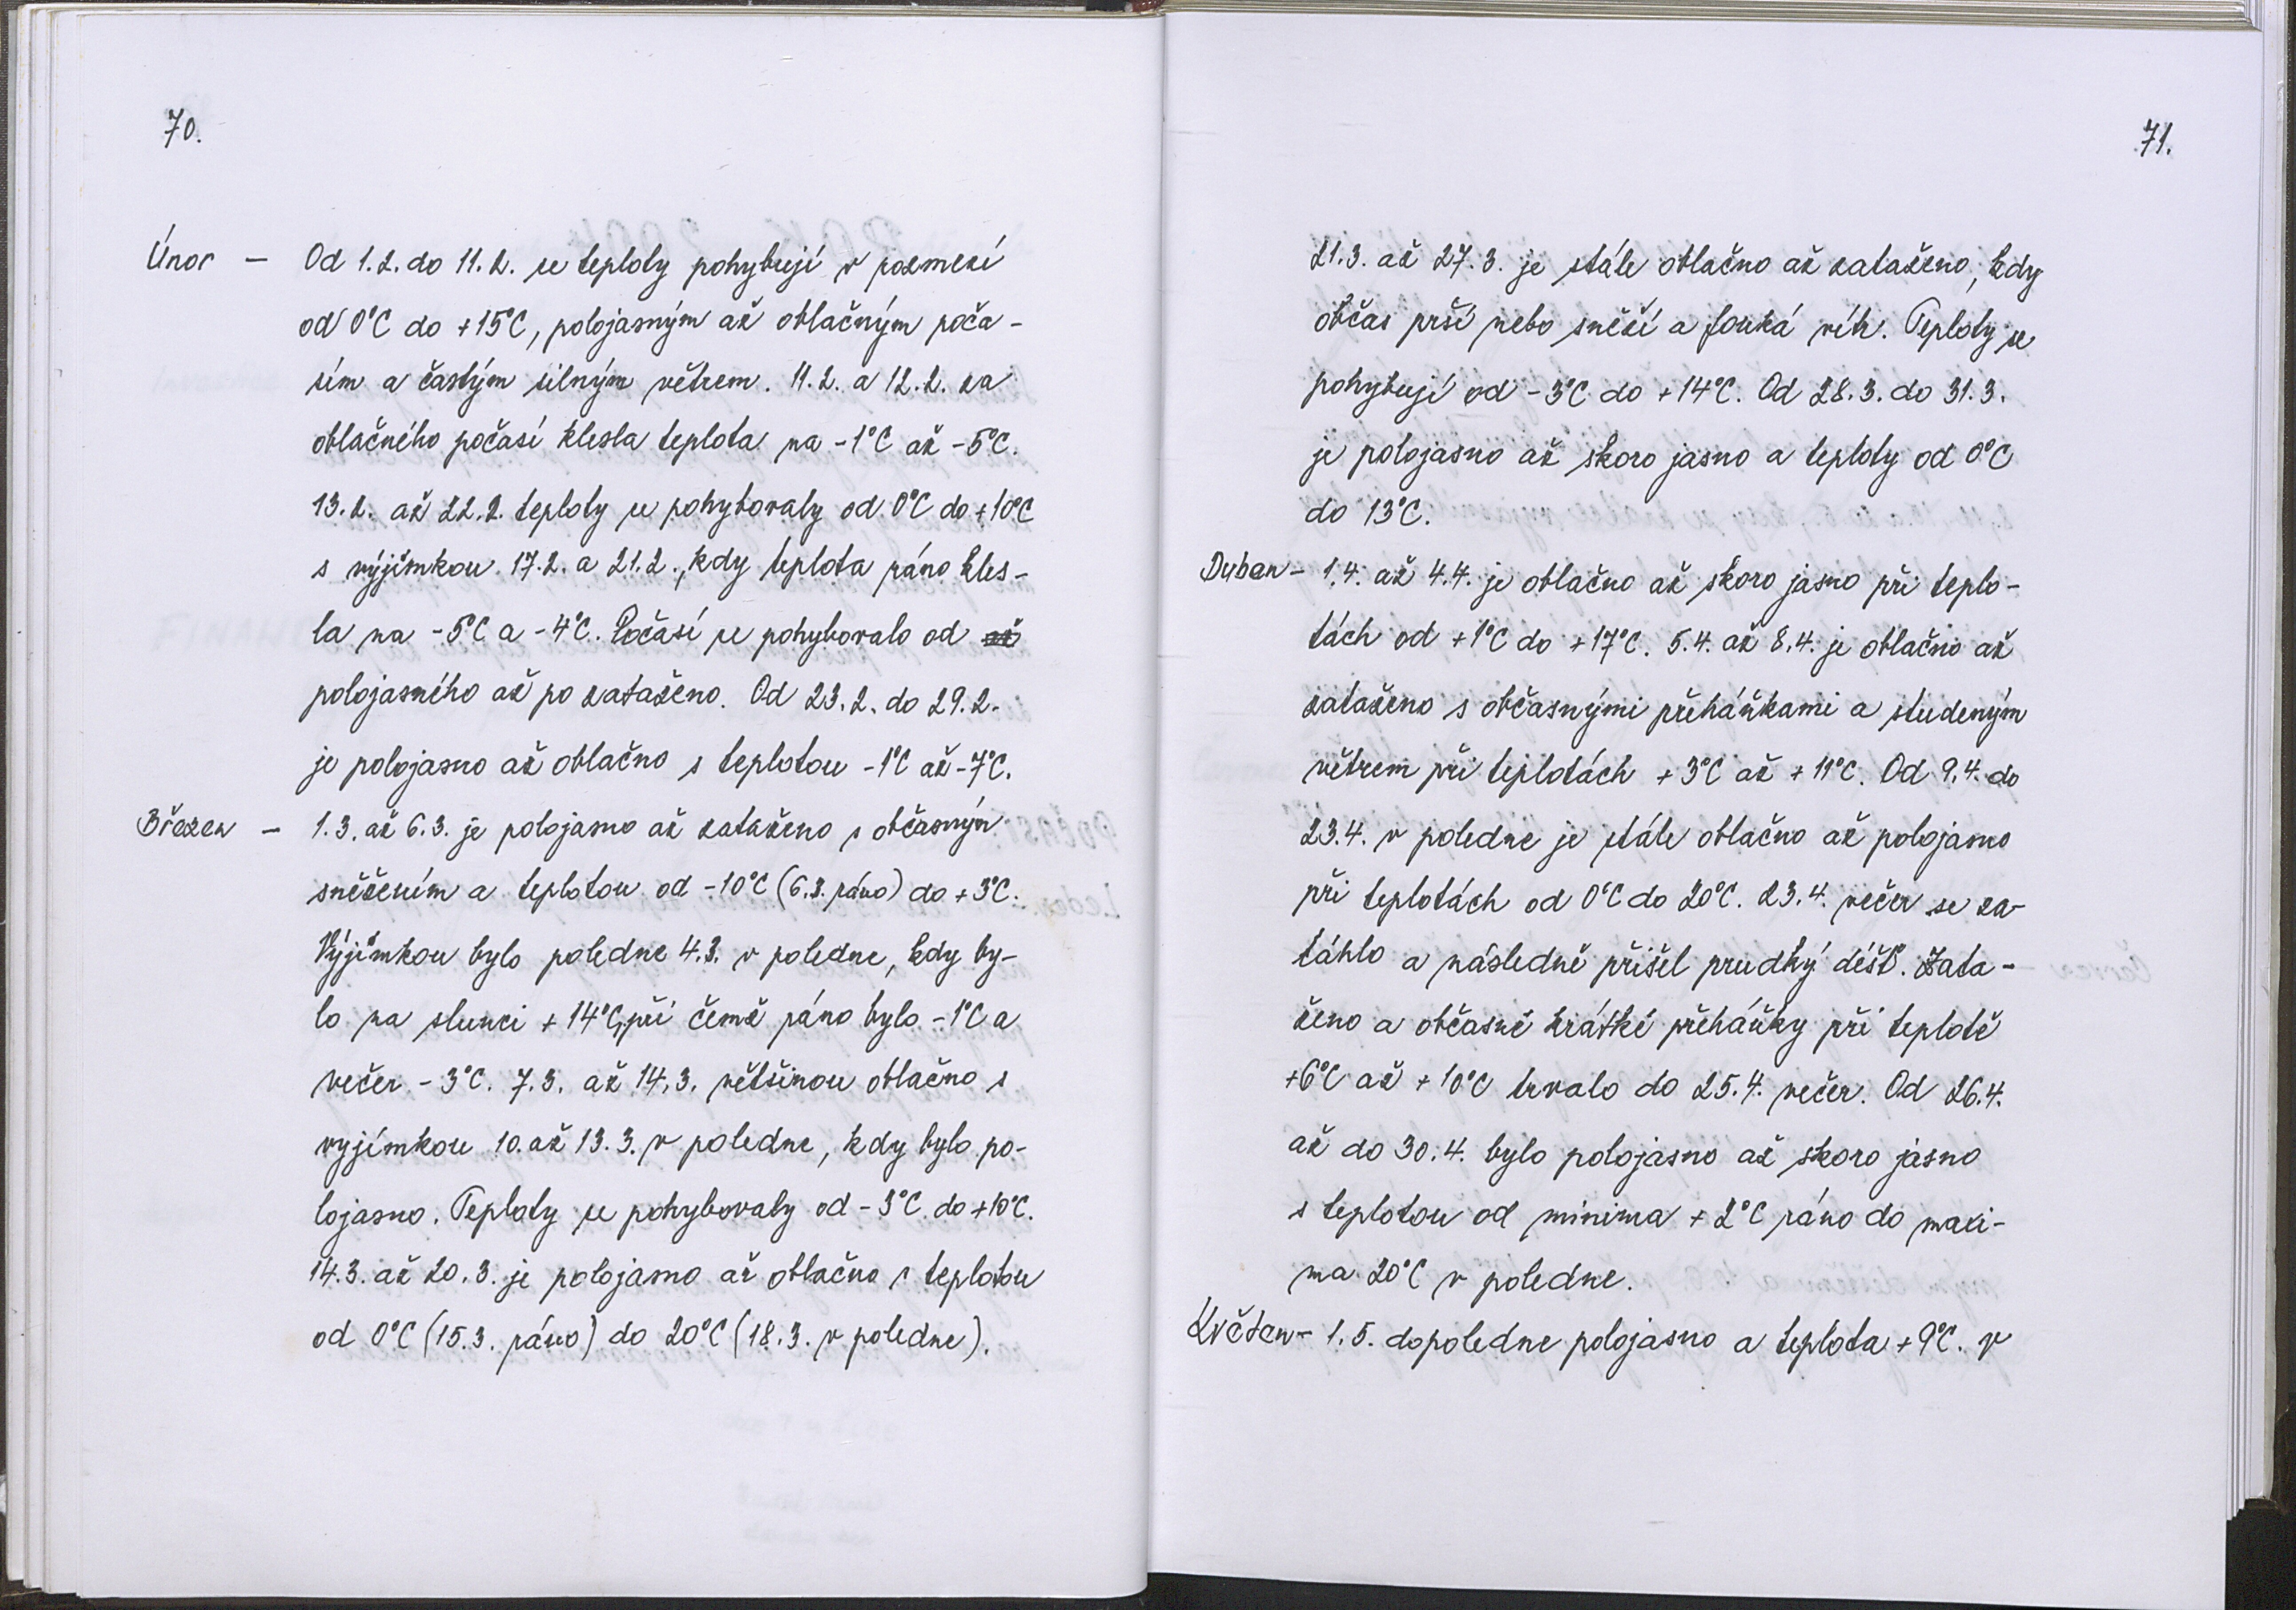 70.
Únor – Od 1.2. do 11.2. se teploty pohybují v rozmezí
od 0°C do +15°C, polojasným až oblačným poča-
sím a častým silným větrem. 11.2. a 12.2. za
oblačného počasí klesla teplota na -1°C až -5°C.
13.2. až 22.2. teploty se pohybovaly od 0°C do +10°C
s výjimkou 17.2. a 21.2., kdy teplota ráno kles-
la na -5°C a -4°C. Počasí se pohybovalo od až
polojasného až po zataženo. Od 23.2. do 29.2.
je polojasno až oblačno s teplotou -1°C až -7°C.
Březen – 1.3. až 6.3. je polojasno až zataženo s občasným
sněžením a teplotou od -10°C (6.3. ráno) do +3°C.
Výjimkou bylo poledne 4.3. v poledne, kdy by-
lo na slunci +14°C, při čemž ráno bylo -1°C a
večer -3°C. 7.3. až 14.3. většinou oblačno s
vyjímkou 10. až 13.3. v poledne, kdy bylo po-
lojasno. Teploty se pohybovaly od -3°C do +10°C.
14.3. až 20.3. je polojasno až oblačno s teplotou
od 0°C (15.3. ráno) do 20°C (18.3. v poledne).
71.
21.3. až 27.3. je stále oblačno až zataženo, kdy
občas prší nebo sněží a fouká vítr. Teploty se
pohybují od -3°C do +14°C. Od 28.3. do 31.3.
je polojasno až skoro jasno a teploty od 0°C
do 13°C.
Duben – 1.4. až 4.4. je oblačno až skoro jasno při teplo-
tách od +1°C do +17°C. 5.4. až 8.4. je oblačno až
zataženo s občasnými přeháňkami a studeným
větrem při teplotách +3°C až +11°C. Od 9.4. do
23.4. v poledne je stále oblačno až polojasno
při teplotách od 0°C do 20°C. 23.4. večer se za-
táhlo a následně přišel prudký déšť. Zata-
ženo a občasné krátké přeháňky při teplotě
+6°C až +10°C trvalo do 25.4. večer. Od 26.4.
až do 30.4. bylo polojasno až skoro jasno
s teplotou od minima +2°C ráno do maxi-
ma 20°C v poledne.
Květen – 1.5. dopoledne polojasno a teplota +9°C. v